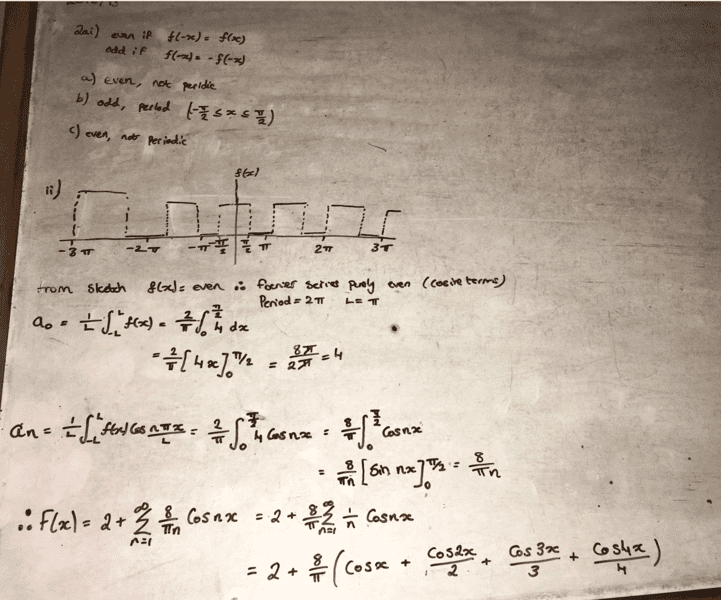 2ai) even if f(-x) = f(x)
odd if f(-x) = -f(-x)
a) even, not peridic
b) odd, period (-π/2 ≤ x ≤ π/2)
c) even, not Periodic
ii)
f(x)
-3π -2π -π -π/2 π/2 π 2π 3π
from sketch f(x) = even ∴ fourier series purely even (cosine terms)
Period = 2π L = π
a₀ = 1/L ∫_{-L}^{L} f(x) = 2/π ∫_0^{π/2} 4 dx
= 2/π [4x]_0^{π/2} = 8π/2π = 4
an = 1/L ∫_{-L}^{L} f(x) cos nπx/L = 2/π ∫_0^{π/2} 4 cos nx = 8/π ∫_0^{π/2} Cos nx
= 8/πn [Sin nx]_0^{π/2} = 8/πn
∴ F(x) = 2 + ∑_{n=1}^{∞} 8/πn Cos nx = 2 + 8/π ∑_{n=1}^{∞} 1/n Cos nx
= 2 + 8/π (Cos x + Cos2x/2 + Cos 3x/3 + Cos4x/4)